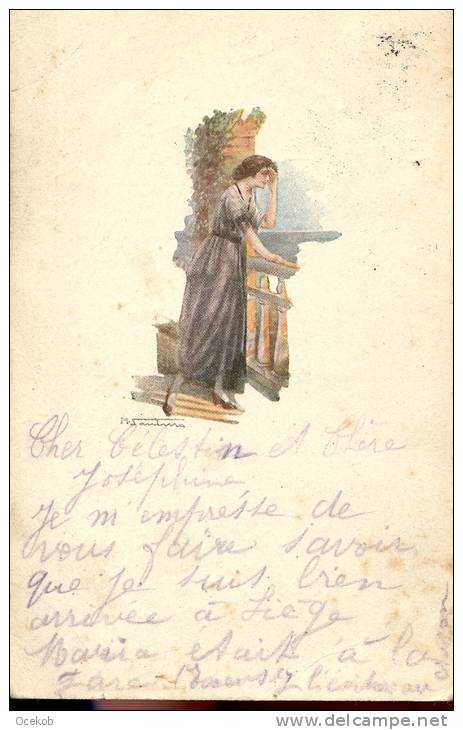 Cher Célestin et Chère
Joséphine
Je m'empresse de
vous faire savoir
que je suis bien
arrivée à Liège
Maria était à la
gare
Ocekob
www.delcampe.net